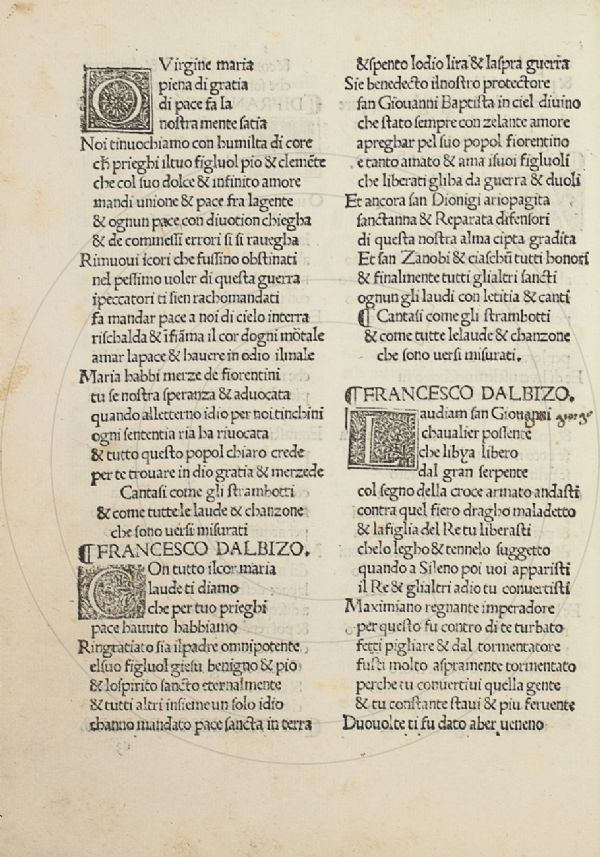 O Virgine maria
piena di gratia
di pace fa la
nostra mente satia
Noi tinuochiamo con humilta di core
ch̄ prieghi iltuo figluol pio & clemēte
che col suo dolce & infinito amore
mandi unione & pace fra lagente
& ognun pace con diuotion chiegha
& de commessi errori si si rauegha
Rimuoui icori che fussino obstinati
nel pessimo uoler di questa guerra
ipeccatori ti sien rachomandati
fa mandar pace a noi di cielo interra
rischalda & ifiāma il cor dogni mōtale
amar lapace & hauere in odio ilmale
Maria habbi merze de fiorentini
tu se nostra speranza & aduocata
quando alletterno idio per noi tinchini
ogni sententia ria ha riuocata
& tutto questo popol chiaro crede
per te trouare in dio gratia & merzede
Cantasi come gli strambotti
& come tutte le laude & chanzone
che sono uersi misurati
¶ FRANCESCO DALBIZO.
COn tutto ilcor maria
laude ti diamo
che per tuo prieghi
pace hauuto habbiamo
Ringratiato sia ilpadre omnipotente
elsuo figluol giesu benigno & pio
& lospirito sancto eternalmente
& tutti altri insieme un solo idio
channo mandato pace sancta in terra
& spento lodio lira & laspra guerra
Sie benedecto ilnostro protectore
san Giouanni Baptista in ciel diuino
che stato sempre con zelante amore
apreghar pel suo popol fiorentino
e tanto amato & ama isuoi figluoli
che liberati gliha da guerra & duoli
Et ancora san Dionigi ariopagita
sanctanna & Reparata difensori
di questa nostra alma cipta gradita
Et san Zanobi & ciaschūn tutti honori
& finalmente tutti glialtri sancti
ognun gli laudi con letitia & canti
¶ Cantasi come gli strambotti
& come tutte lelaude & chanzone
che sono uersi misurati.
¶ FRANCESCO DALBIZO.
Laudiam san Giouanni george
chaualier possente
che libya libero
dal gran serpente
col segno della croce armato andasti
contra quel fiero dragho maladetto
& lafiglia del Re tu liberasti
chelo legho & tennelo suggetto
quando a Sileno poi uoi apparisti
il Re & glialtri adio tu conuertisti
Maximiano regnante imperadore
per questo fu contro di te turbato
fetti pigliare & dal tormentatore
fusti molto aspramente tormentato
perche tu conuertiui quella gente
& tu constante staui & piu feruente
Duouolte ti fu dato aber ueneno